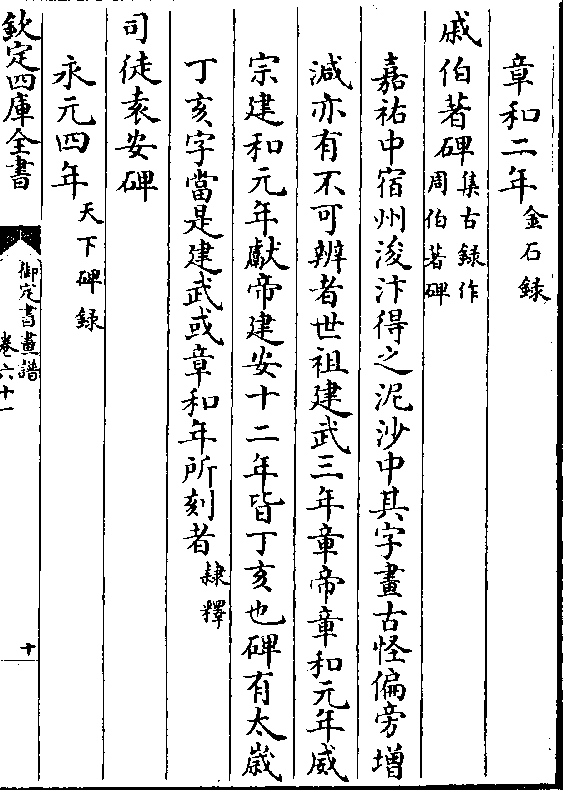 章和二年金石録
戚伯著碑集古録作周伯著碑
嘉祐中宿州浚汴得之泥沙中其字畫古怪偏旁增
減亦有不可辨者世祖建武三年章帝章和元年威
宗建和元年獻帝建安十二年皆丁亥也碑有太歲
丁亥字當是建武或章和年所刻者隷釋
司徒袁安碑
永元四年天下碑録
欽定四庫全書
御定書畫譜
卷六十一
十